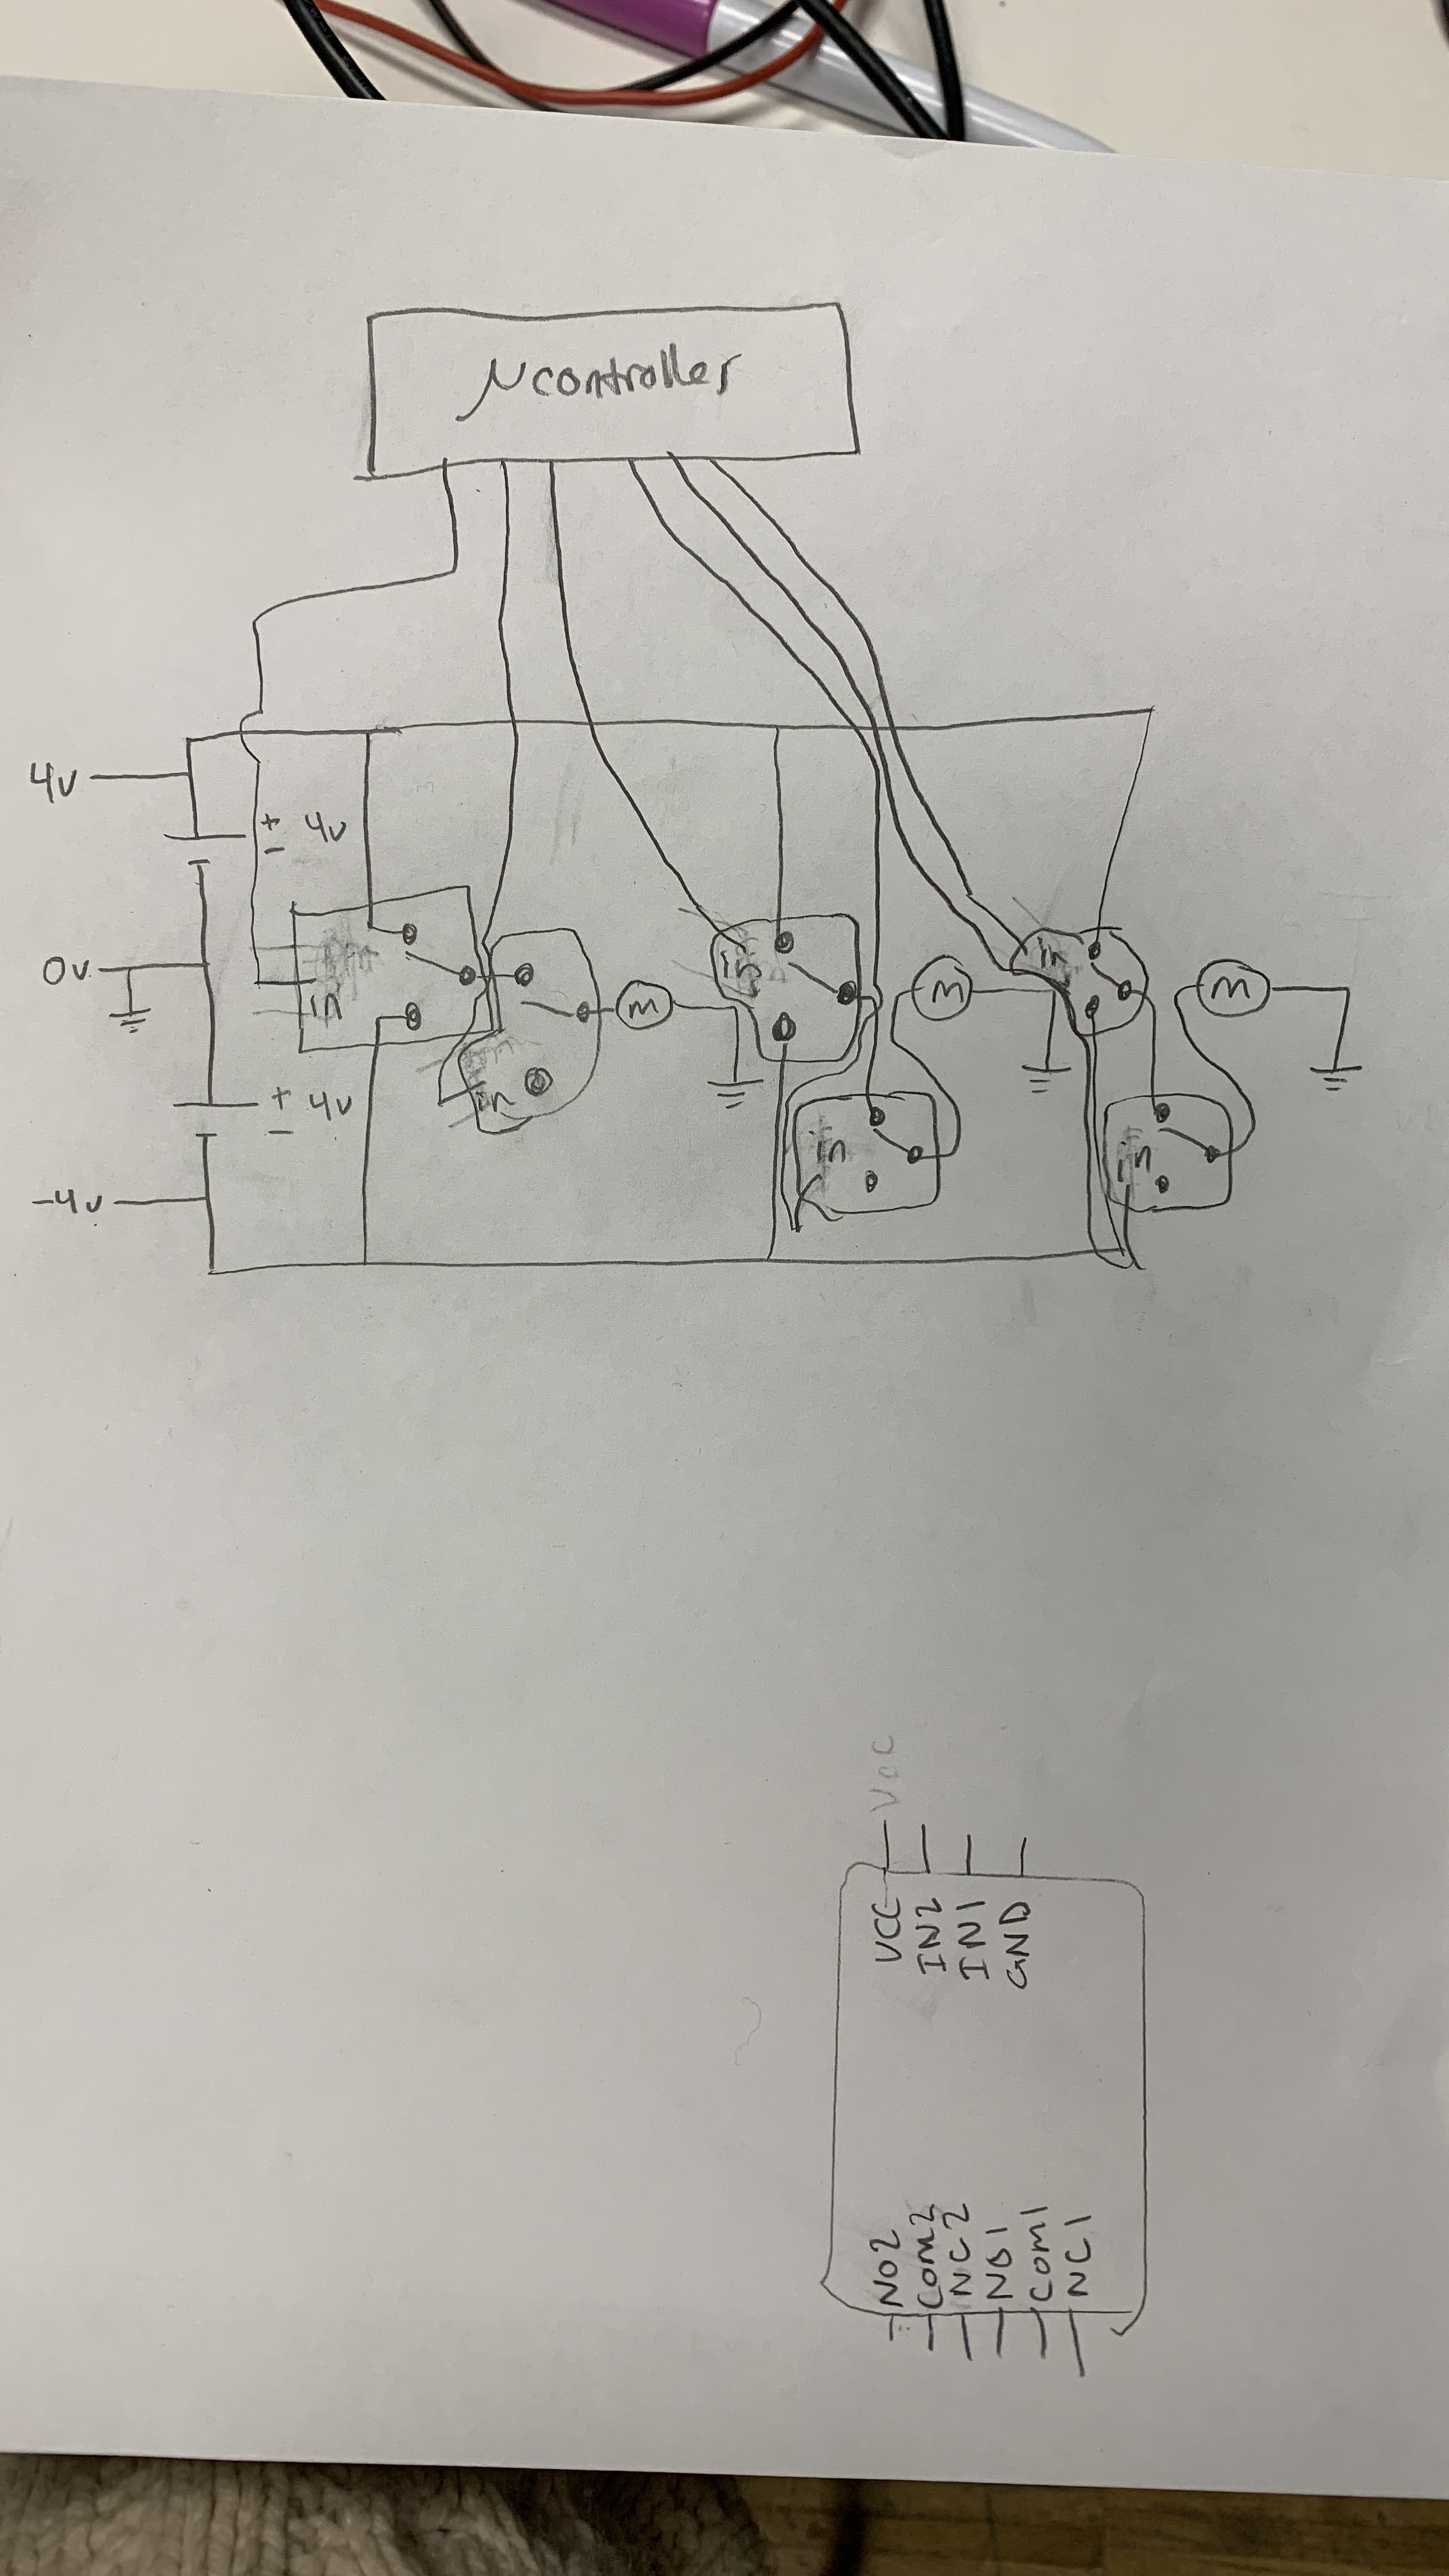 μcontroller
4v
+
-
4v
0v
in
in
in
in
in
in
M
M
M
+
-
4v
-4v
Vcc
VCC
IN2
IN1
GND
NO2
COM2
NC2
NO1
COM1
NC1